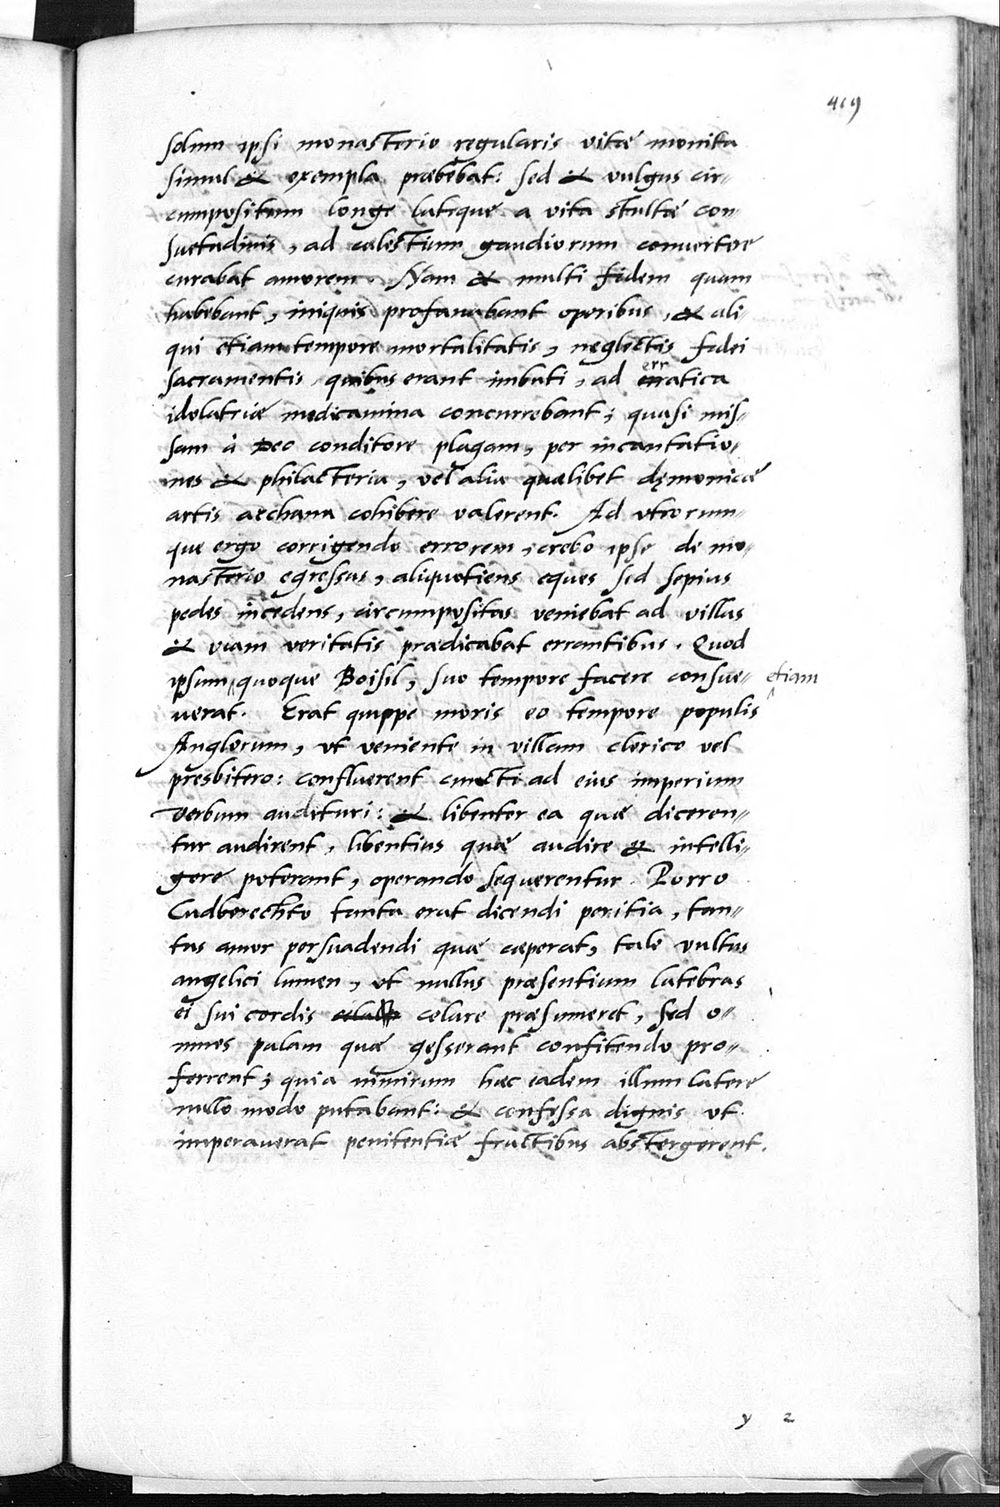 419
solum ipsi monasterio regularis vitæ monita
simul & exempla præbebat: sed & vulgus cir-
cumpositum longe lateque a vita stultæ con-
suetudinis, ad cælestium gaudiorum convertere
curabat amorem. Nam & multi fidem quam
habebant, iniquis profanabant operibus, & ali-
qui etiam tempore mortalitatis, neglectis fidei
sacramentis quibus erant imbuti, ad erratica
idolatriæ medicamina concurrebant; quasi mis-
sam à Deo conditore plagam, per incantatio-
nes & philacteria, vel alia quælibet dęmonicæ
artis archana cohibere valerent. Ad vtrorum-
que ergo corrigendo errorem, crebo ipse de mo-
nasterio egressus, aliquotiens eques sed sepius
pedes incedens, circumpositas veniebat ad villas
& viam veritatis prædicabat errantibus. Quod
ipsum quoque Boisil, suo tempore facere consue- etiam
uerat. Erat quippe moris eo tempore populis
Anglorum, vt veniente in villam clerico vel
presbitero: confluerent cuncti ad eius imperium
verbum audituri: & libenter ea quæ diceren-
tur audirent, libentius quæ audire & intelli-
gere poterant, operando sequerentur. Porro
Cudberechto tanta erat dicendi peritia, tan-
tus amor persuadendi quæ cæperat, tale vultus
angelici lumen, vt nullus præsentium latebras
ei sui cordis celare præsumeret, sed o-
mnes palam quæ gesserant confitendo pro-
ferrent; quia nimirum hæc eadem illum latere
nullo modo putabant: & confessa dignis vt
imperauerat penitentiæ fructibus abstergerent.
y 2